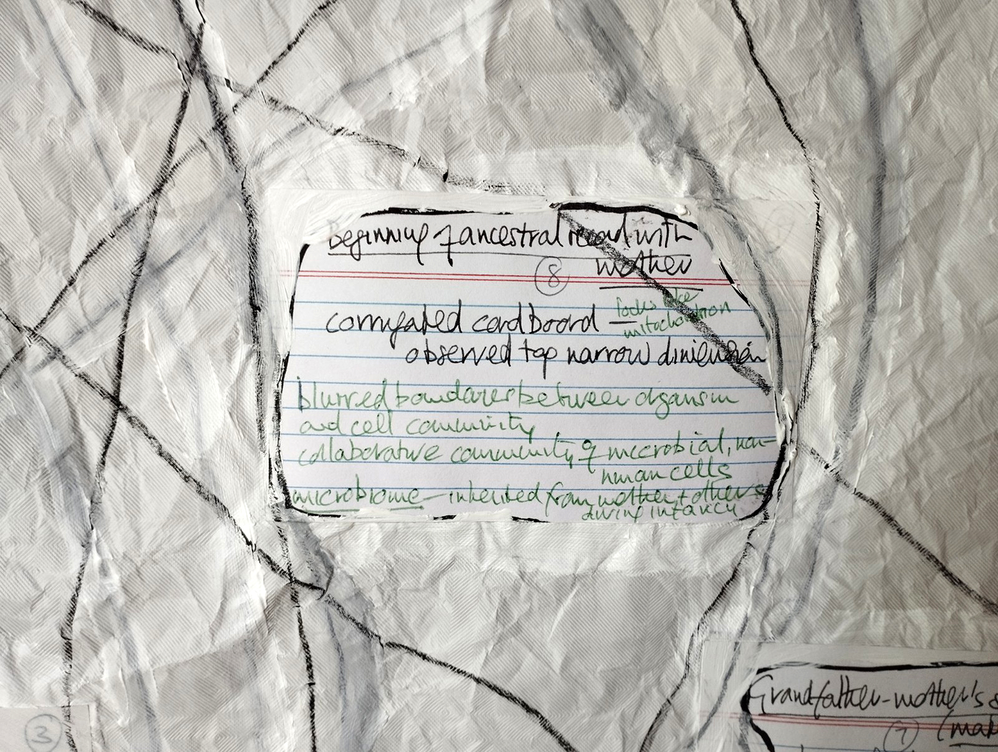 beginning of ancestral record with
mother
8
corrugated cardboard — looks like
mitochondrion
observed top narrow dimension
blurred boundaries between organism
and cell community
collaborative community of microbial, non-
human cells
microbiome - inherited from mother + others
during infancy
Grandfather-mother's
7
3